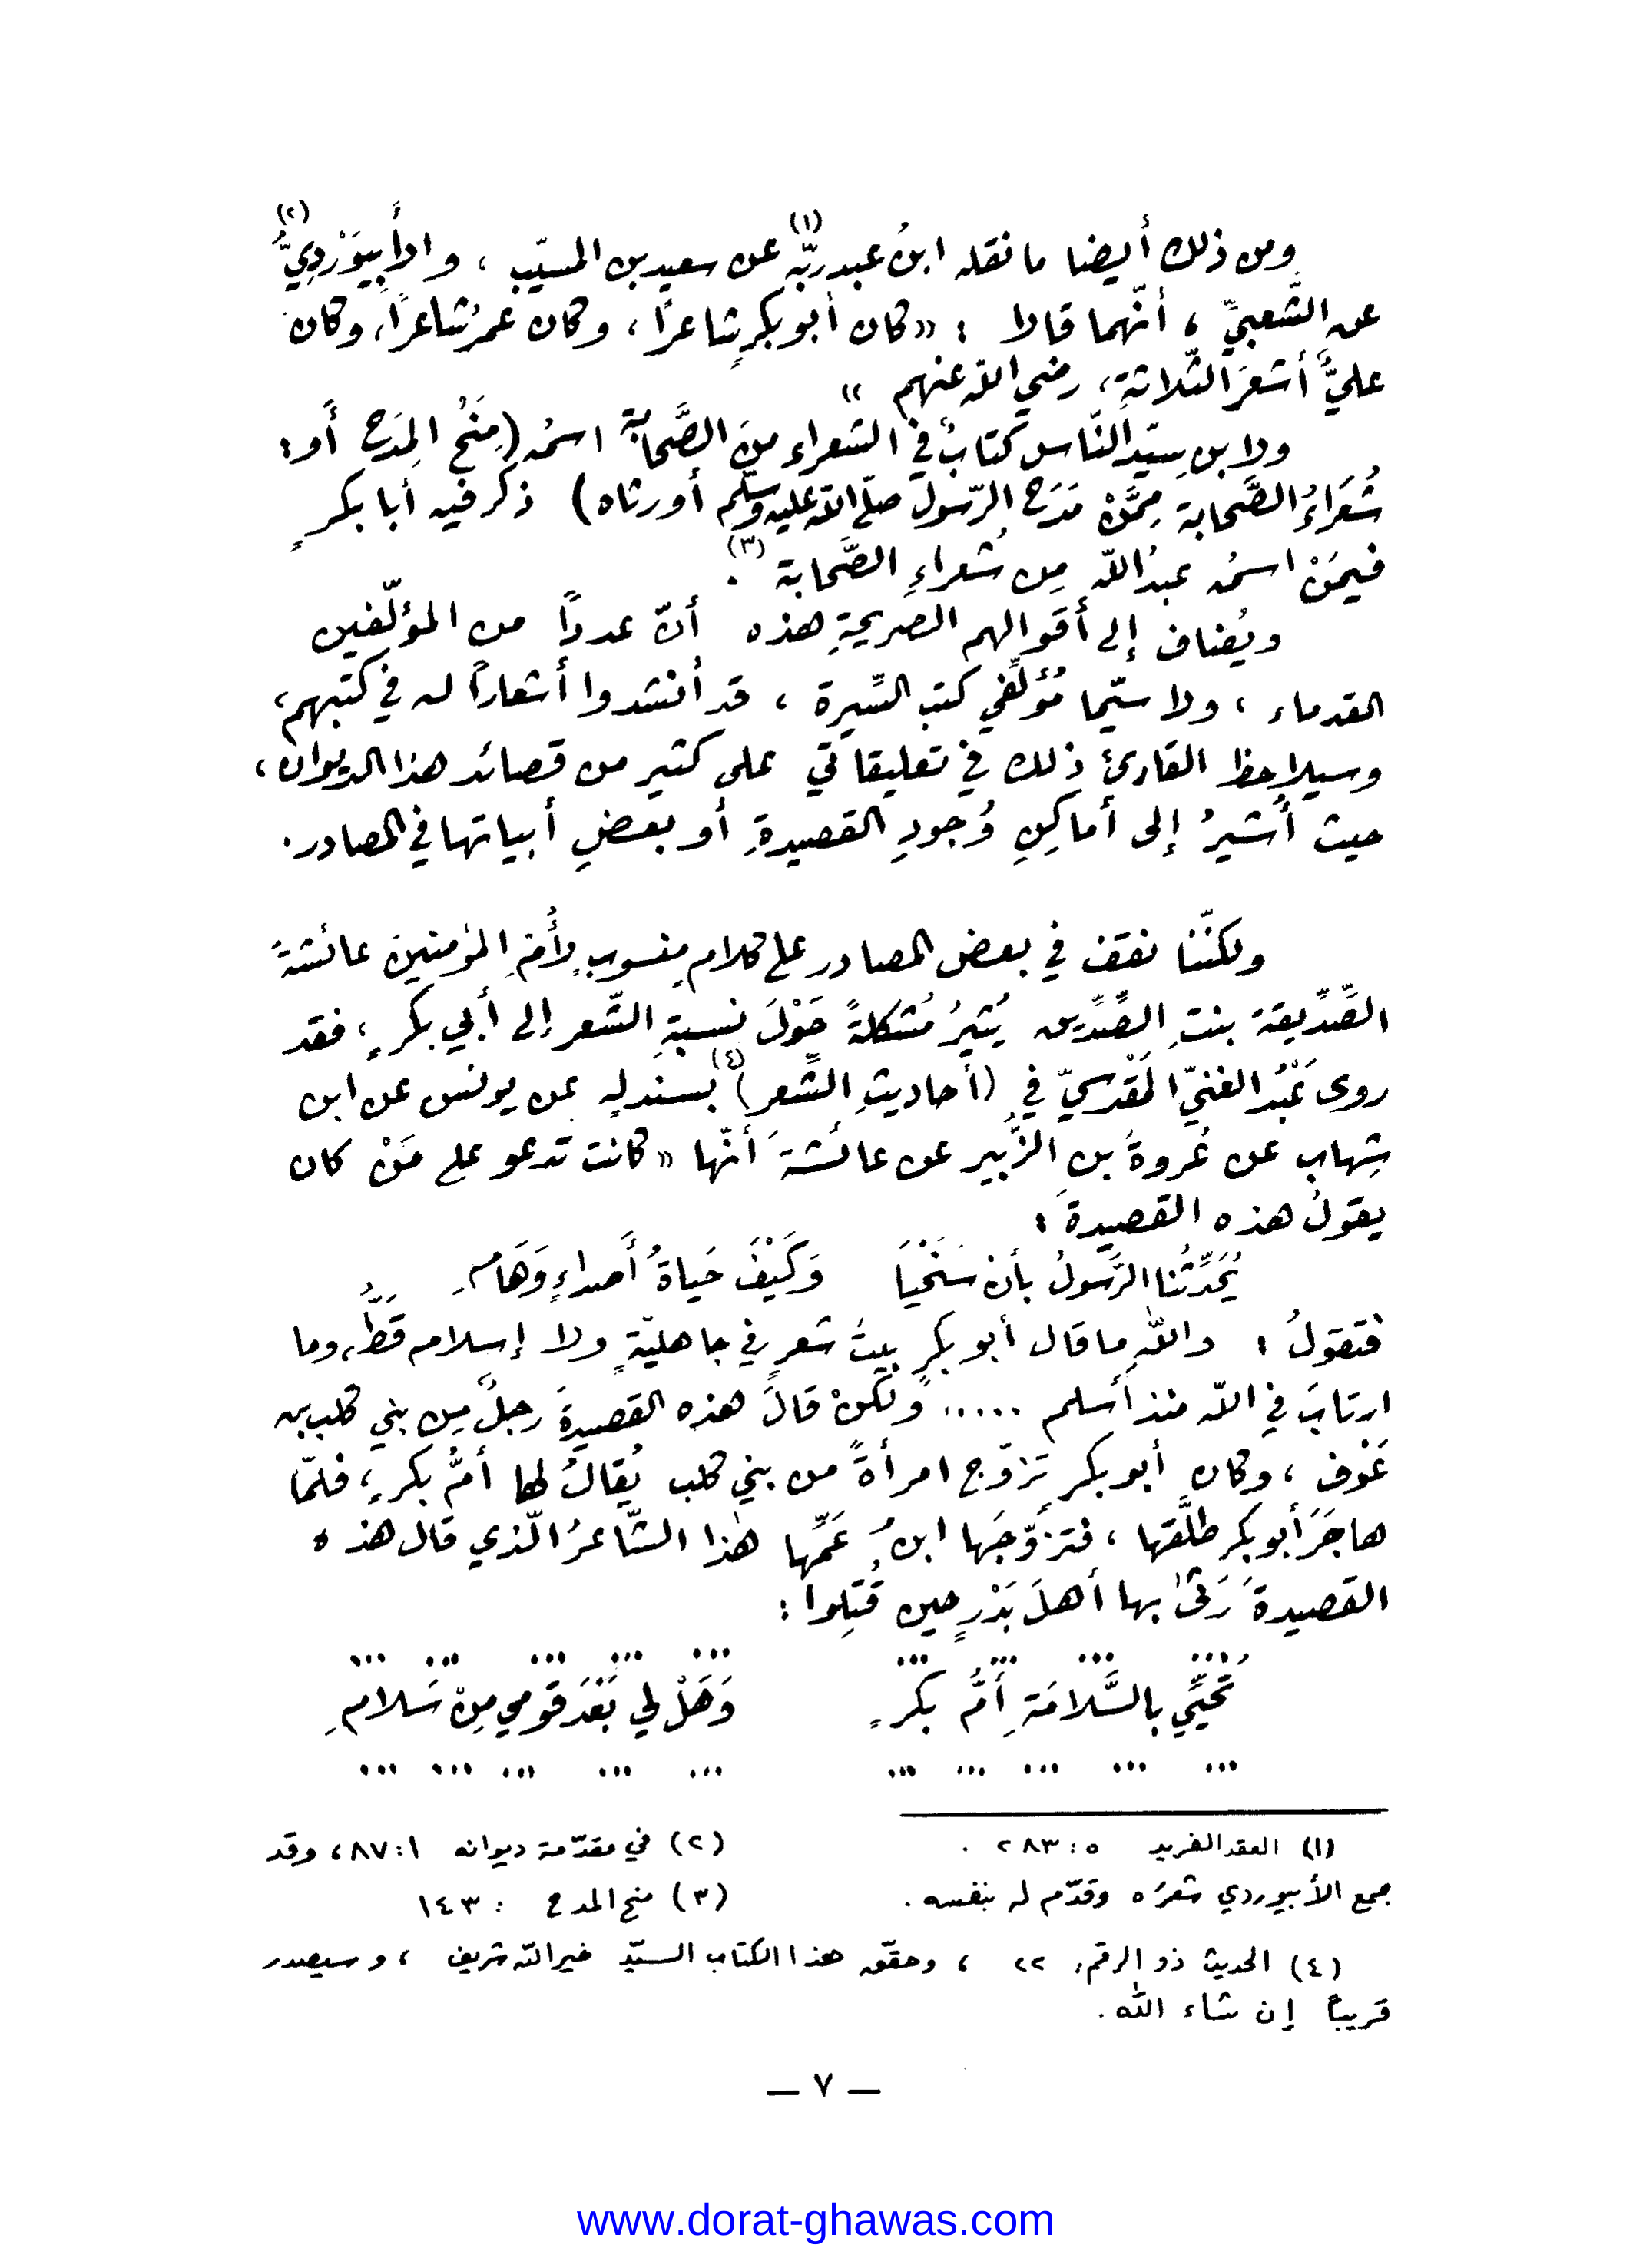 ومن ذلك أيضا ما نقله ابنُ عبدربّه(١) عن سعيد بن المسيّب ، والأَبيوَرْديُّ(٢)
عن الشَّعبيِّ ، أنّهما قالا : «كان أبو بكرٍ شاعرًا ، وكان عمرُ شاعرًا، وكان
عليٌّ أشعرَ الثّلاثةِ، رضي الله عنهم »
ولابن سيّد النّاس كتابٌ في الشعراء منَ الصَّحابة اسمُه (مِنَحُ المِدَح أو:
شُعَرَاءُ الصَّحابة مِمَّنْ مَدَحَ الرّسولَ صلّى الله عليه وسلّم أو رثاه) ذكر فيه أبا بكرٍ
فيمَنْ اسمُه عبدُ الله مِن شُعراءِ الصَّحابة (٣) .
ويُضاف إلى أقوالهم الصريحةِ هذه أنّ عددًا من المؤلّفين
القدماء ، ولا سيّما مُؤلِّفي كتب السِّيرة ، قد أنشدوا أشعارًا له في كتبهم،
وسيلاحظ القارئ ذلك في تعليقاتي على كثير من قصائد هذا الديوان،
حيث أُشيرُ إلى أماكِنِ وُجودِ القصيدةِ أو بعضِ أبياتها في المصادر.
ولكنّنا نقف في بعض المصادر على كلامٍ منسوبٍ لأُمِّ المؤمنينَ عائشةَ
الصِّدِّيقة بنتِ الصِّدِّيق يُثيرُ مُشكلةً حَوْلَ نسبةِ الشّعر إلى أبي بكرٍ، فقد
روى عَبْدُ الغنيّ المَقْدسيّ في (أحاديثِ الشِّعر)(٤) بسندٍ له عن يونس عن ابن
شِهاب عن عُروةَ بن الزُّبير عن عائشةَ أنّها «كانت تدعو على مَنْ كان
يقولُ هذه القصيدةَ :
يُحَدِّثُنا الرَّسولُ بأن سَنَحْيَا وَكَيْفَ حَياةُ أَصداءٍ وَهَامِ
فتقولُ : واللهِ ما قال أبو بكرٍ بيتَ شعرٍ في جاهليّةٍ ولا إسلام قَطُّ، وما
ارتابَ في الله منذ أسلم ..... ولكنْ قالَ هذه القصيدةَ رجلٌ مِن بني كلب بن
عَوْف ، وكان أبو بكرٍ تزوّج امرأةً من بني كلب يُقالُ لها أمُّ بكرٍ، فلمّا
هاجَرَ أبو بكر طلَّقها ، فتزوّجَها ابنُ عَمِّها هٰذا الشّاعرُ الّذي قال هذه
القصيدةَ رَثىٰ بها أهلَ بَدْرٍ حين قُتِلوا :
... ... ... ... ... ... ... ... ...
تُحَيِّي بالسَّلامَةِ أُمَّ بكرٍ وَهَلْ لي بَعْدَ قومي مِنْ سَلامِ
... ... ... ... ... ... ... ... ... ...
(١) العقد الفريد ٥ : ٢٨٣ . (٢) في مقدّمة ديوانه ١ : ٨٧، وقد
جمع الأبيوردي شعرَه وقدّم له بنفسه . (٣) منح المدح : ١٤٣
(٤) الحديث ذو الرقم: ٢٢ ، وحقّق هذا الكتاب السيّد خير الله شريف ، وسيصدر
قريباً إن شاء الله .
— ٧ —
www.dorat-ghawas.com